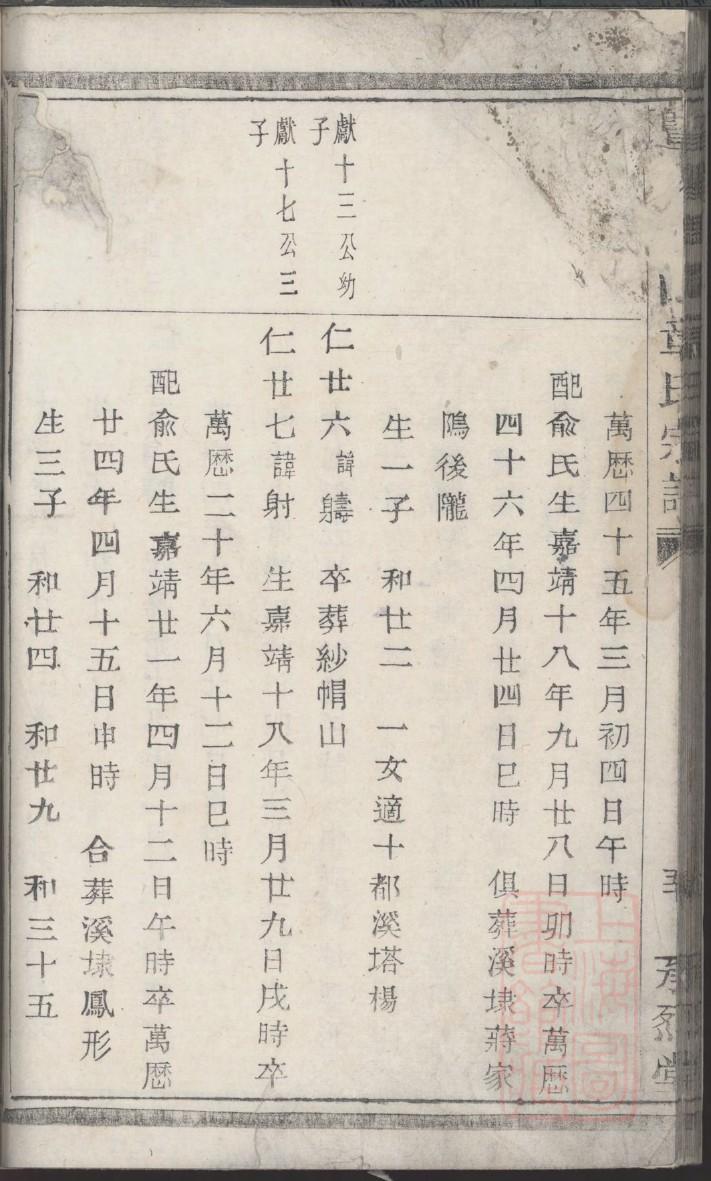 章氏宗譜
萬歷四十五年三月初四日午時
配俞氏生嘉靖十八年九月廿八日卯時卒萬歷
四十六年四月廿四日巳時 俱葬溪埭蔣家
隝後隴
生一子 和廿二 一女適十都溪塔楊
獻十三公幼子
仁廿六諱䠧 卒葬紗帽山
獻十七公三子
仁廿七諱射 生嘉靖十八年三月廿九日戌時卒
萬歷二十年六月十二日巳時
配俞氏生嘉靖廿一年四月十二日午時卒萬歷
廿四年四月十五日申時 合葬溪埭鳳形
生三子 和廿四 和廿九 和三十五
上海圖書館藏